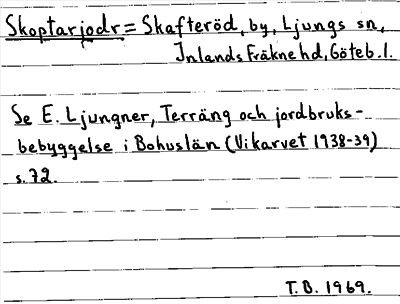 Skoptarjodr = Skafteröd, by, Ljungs sn,
Inlands Fräkne hd, Göteb. l.
Se E. Ljungner, Terräng och jordbruks-
bebyggelse i Bohuslän (Vikarvet 1938-39)
s. 72.
T. B. 1969.